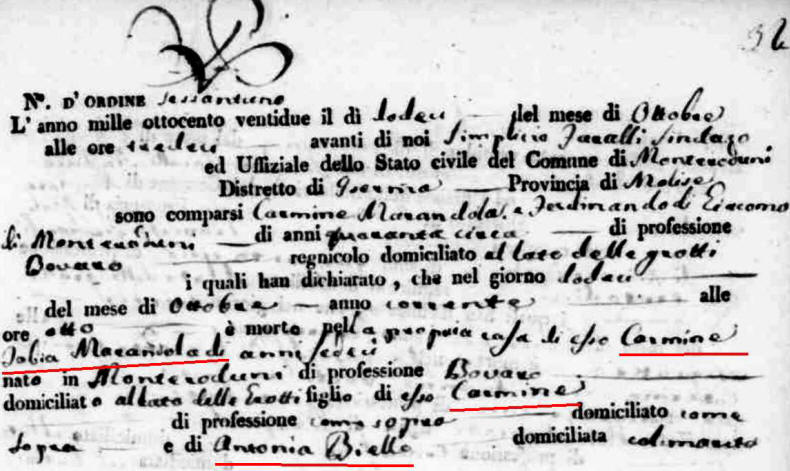 32
Nº. D'ORDINE sessantuno
L'anno mille ottocento ventidue il dì dodeci del mese di Ottobre
alle ore tredeci avanti di noi Simplicio Sindaco
ed Uffiziale dello Stato civile del Comune di Monteroduni
Distretto di Isernia Provincia di Molise
sono comparsi Carmine Marandola, e Ferdinando di Giacomo
di Monteroduni di anni quaranta circa di professione
Bovaro regnicolo domiciliato al lato delle grotti
i quali han dichiarato, che nel giorno dodeci
del mese di Ottobre anno corrente alle
ore otto è morto nella propria casa di esso Carmine
Marandola di anni sedeci
nato in Monteroduni di professione Bovaro
domiciliato al lato delle Grotti figlio di esso Carmine
di professione come sopra domiciliato come
sopra e di Antonia Biello domiciliata